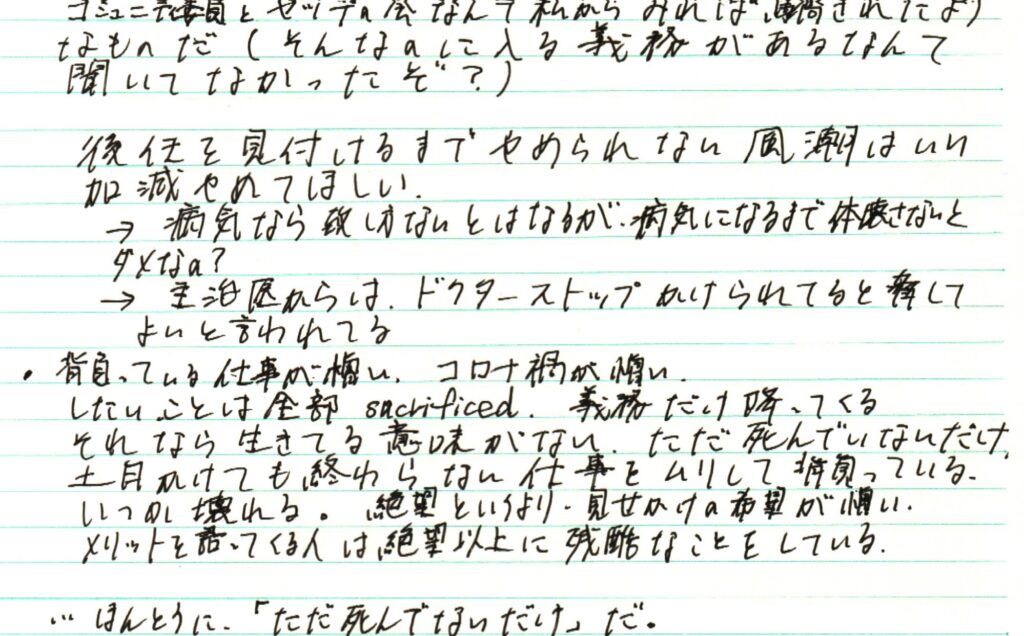 コミュニティ委員とセットの会なんて私からみればされたよう
なものだ(そんなのに入る義務があるなんて
聞いてなかったぞ?)
後任を見付けるまでやめられない風潮はいい
加減やめてほしい.
→ 病気なら致しかないとはなるが、病気になるまで体壊さないと
ダメなの?
→ 主治医からは、ドクターストップかけられてると話して
よいと言われてる
・背負っている仕事が憎い. コロナ禍が憎い.
したいことは全部 sacrificed. 義務だけ降ってくる
それなら生きてる意味がない. ただ死んでいないだけ.
土日かけても終わらない仕事をムリして背負っている.
いつか壊れる。絶望というより、見せかけの希望が憎い.
メリットを語ってくる人は絶望以上に残酷なことをしている.
… ほんとうに、「ただ死んでないだけ」だ。